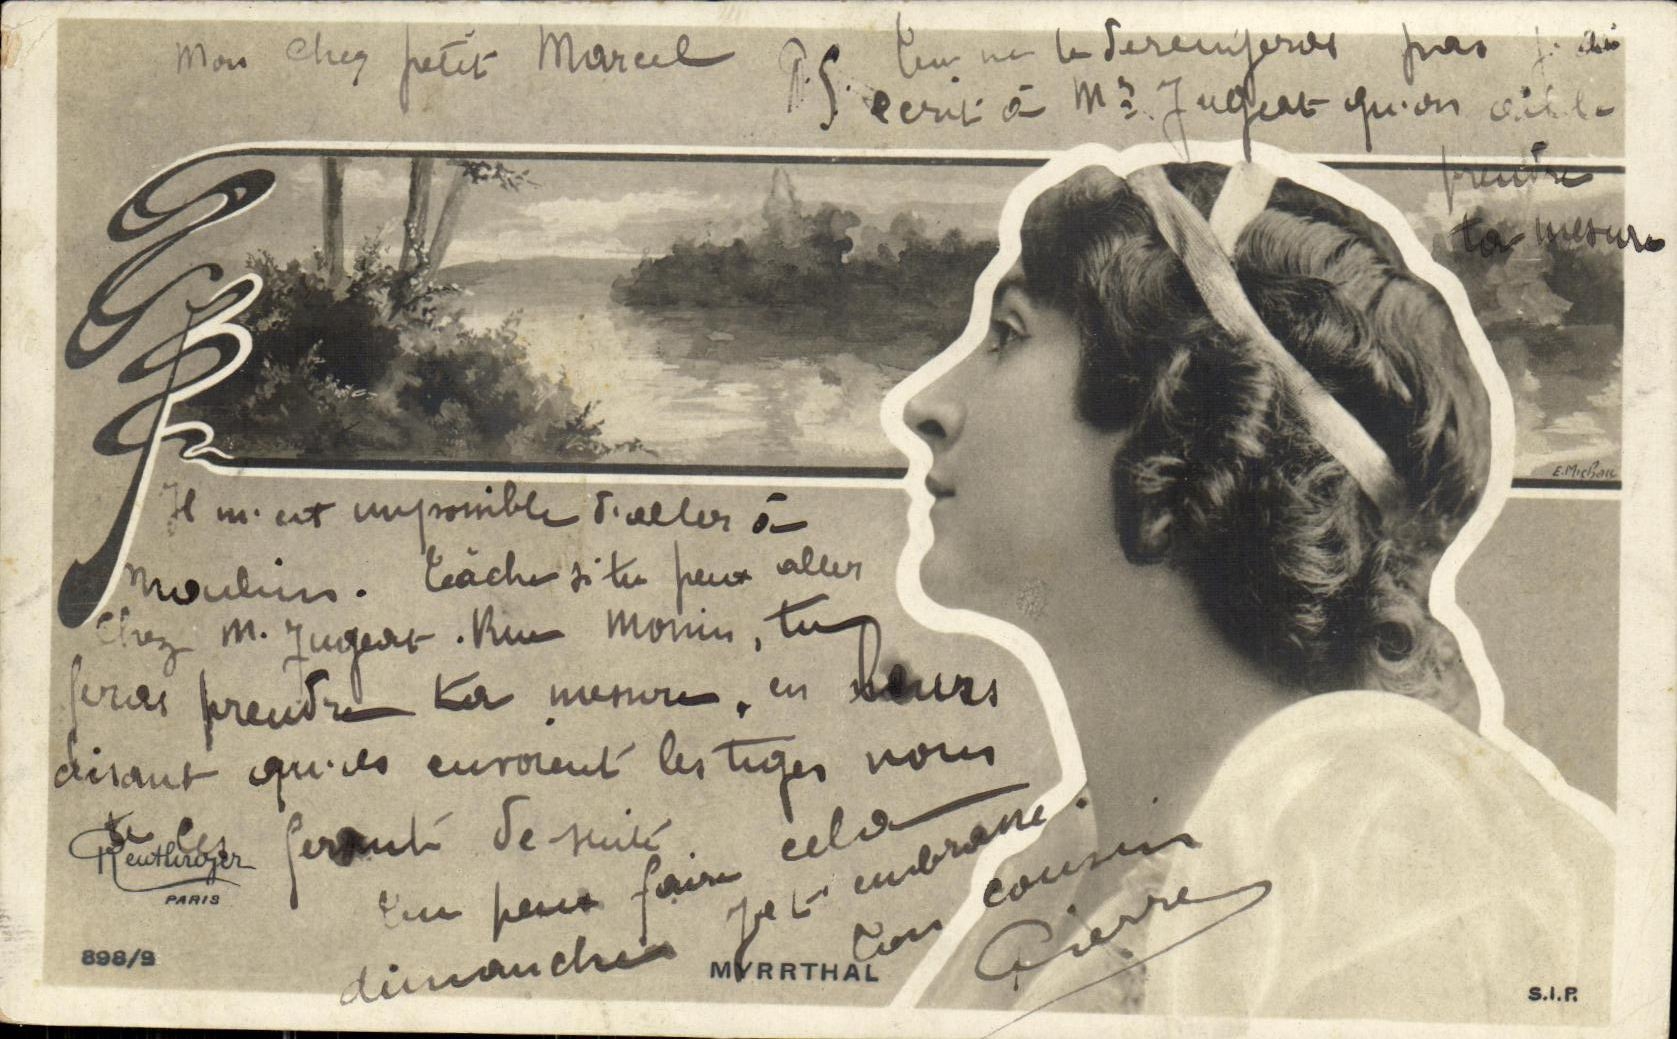 Mon Cher petit Marcel
P.S. Tu ne te derengeras pas j'ai
écrit à Mr Jugeat qu'on aille
prendre
ta mesure
E. Michau
Il m'est impossible d'aller à
Moulins. Tâche si tu peux aller
Chez M. Jugeat. Rue Monin, tu
feras prendre ta mesure, en leurs
disant qu'ils envoient les tiges nous
te les feront de suite.
Tu peux faire cela
dimanche
je t'embrasse.
Ton cousin
Pierre
Reutlinger
PARIS
898/9
MYRRTHAL
S.I.P.